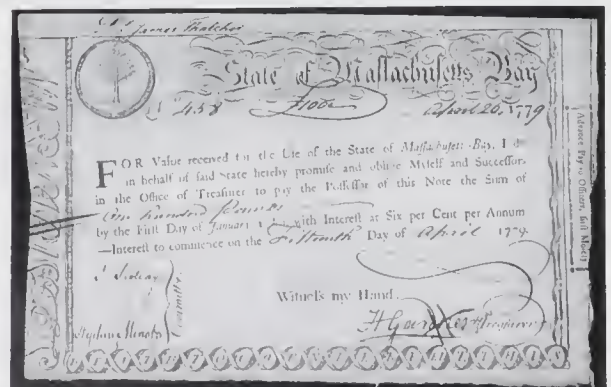 James Thatcher
State of Massachusetts Bay
£ 458 April 20, 1779
FOR Value received for the Use of the State of Massachusetts-Bay, I do
in behalf of said State hereby promise and oblige Myself and Successors
in the Office of Treasurer to pay the Possessor of this Note the Sum of
One hundred Pounds
by the First Day of January with Interest at Six per Cent per Annum
—Interest to commence on the Fifteenth Day of April 1779.
Committee
Witness my Hand.
H Gardner Treasurer
Advance Pay to Officers, first Moiety